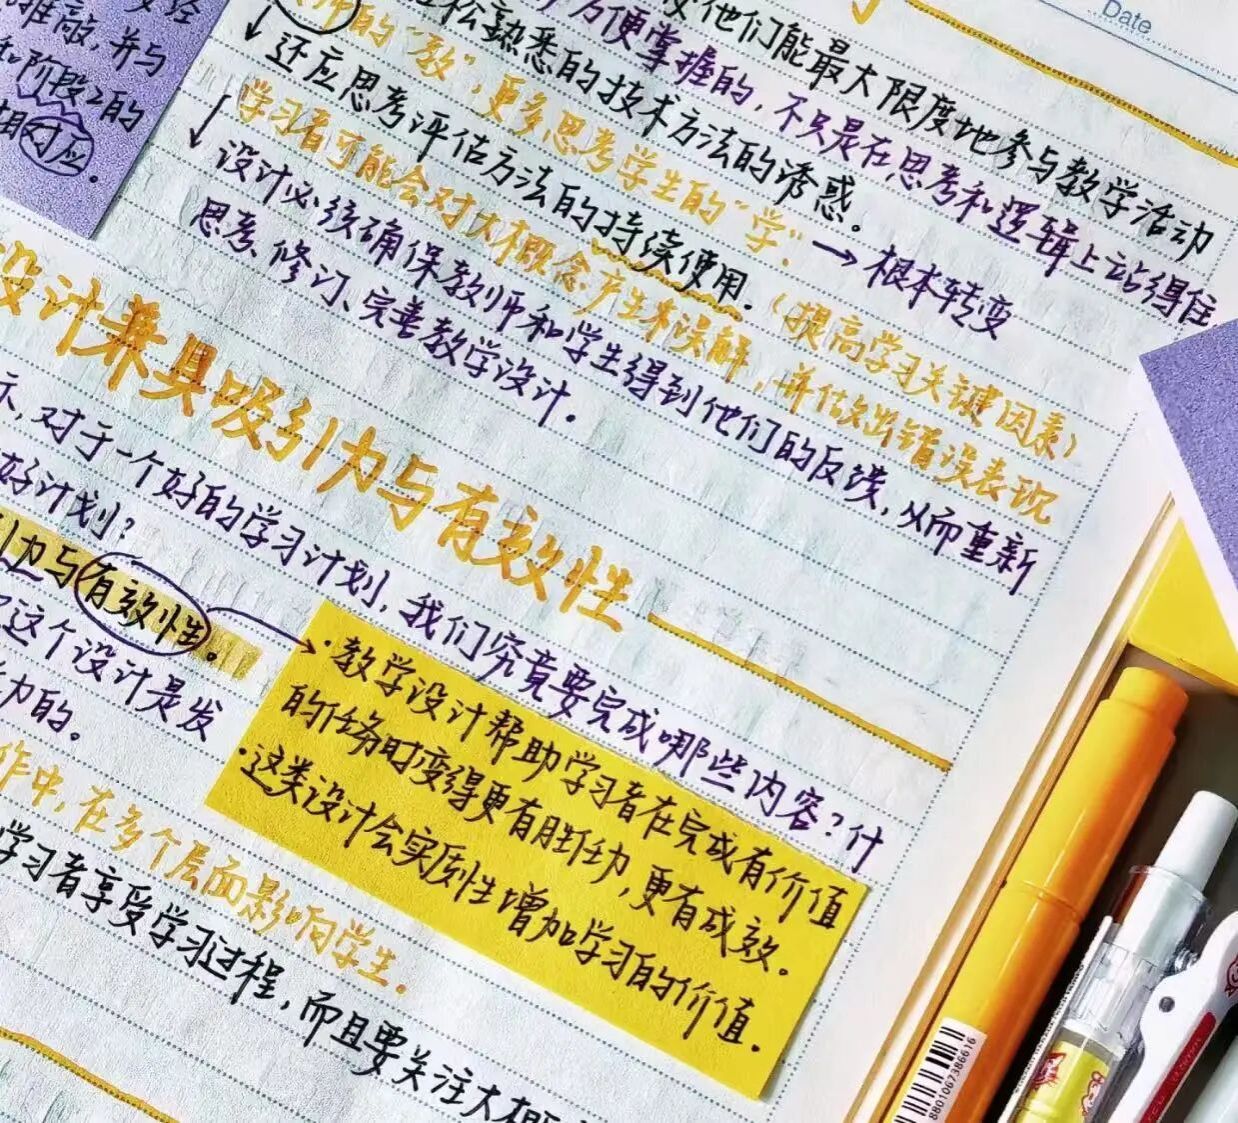 Date
推敲,并与
阶段2的
对应。
他们能最大限度地参与教学活动
方便掌握的,不只是在思考和逻辑上站得住
轻松熟悉的技术方法的诱惑。
师的“教”,更多思考学生的“学”。→根本转变
还应思考评估方法的持续使用。(提高学习关键因素)
学习者可能会对大概念产生误解,并估错误表现
设计必须确保教师和学生得到他们的反馈,从而重新
思考、修订、完善教学设计。
设计兼具吸引力与有效性
示,对于一个好的学习计划,我们究竟要完成哪些内容?什
好计划?
引力与有效性。
这个设计是发
力的。
·教学设计帮助学习者在完成有价值
的任务时变得更有胜任力,更有成效。
·这类设计会实质性增加学习的价值。
作中,在多个层面影响学生。
学习者享受学习过程,而且要关注大概
8801067386616